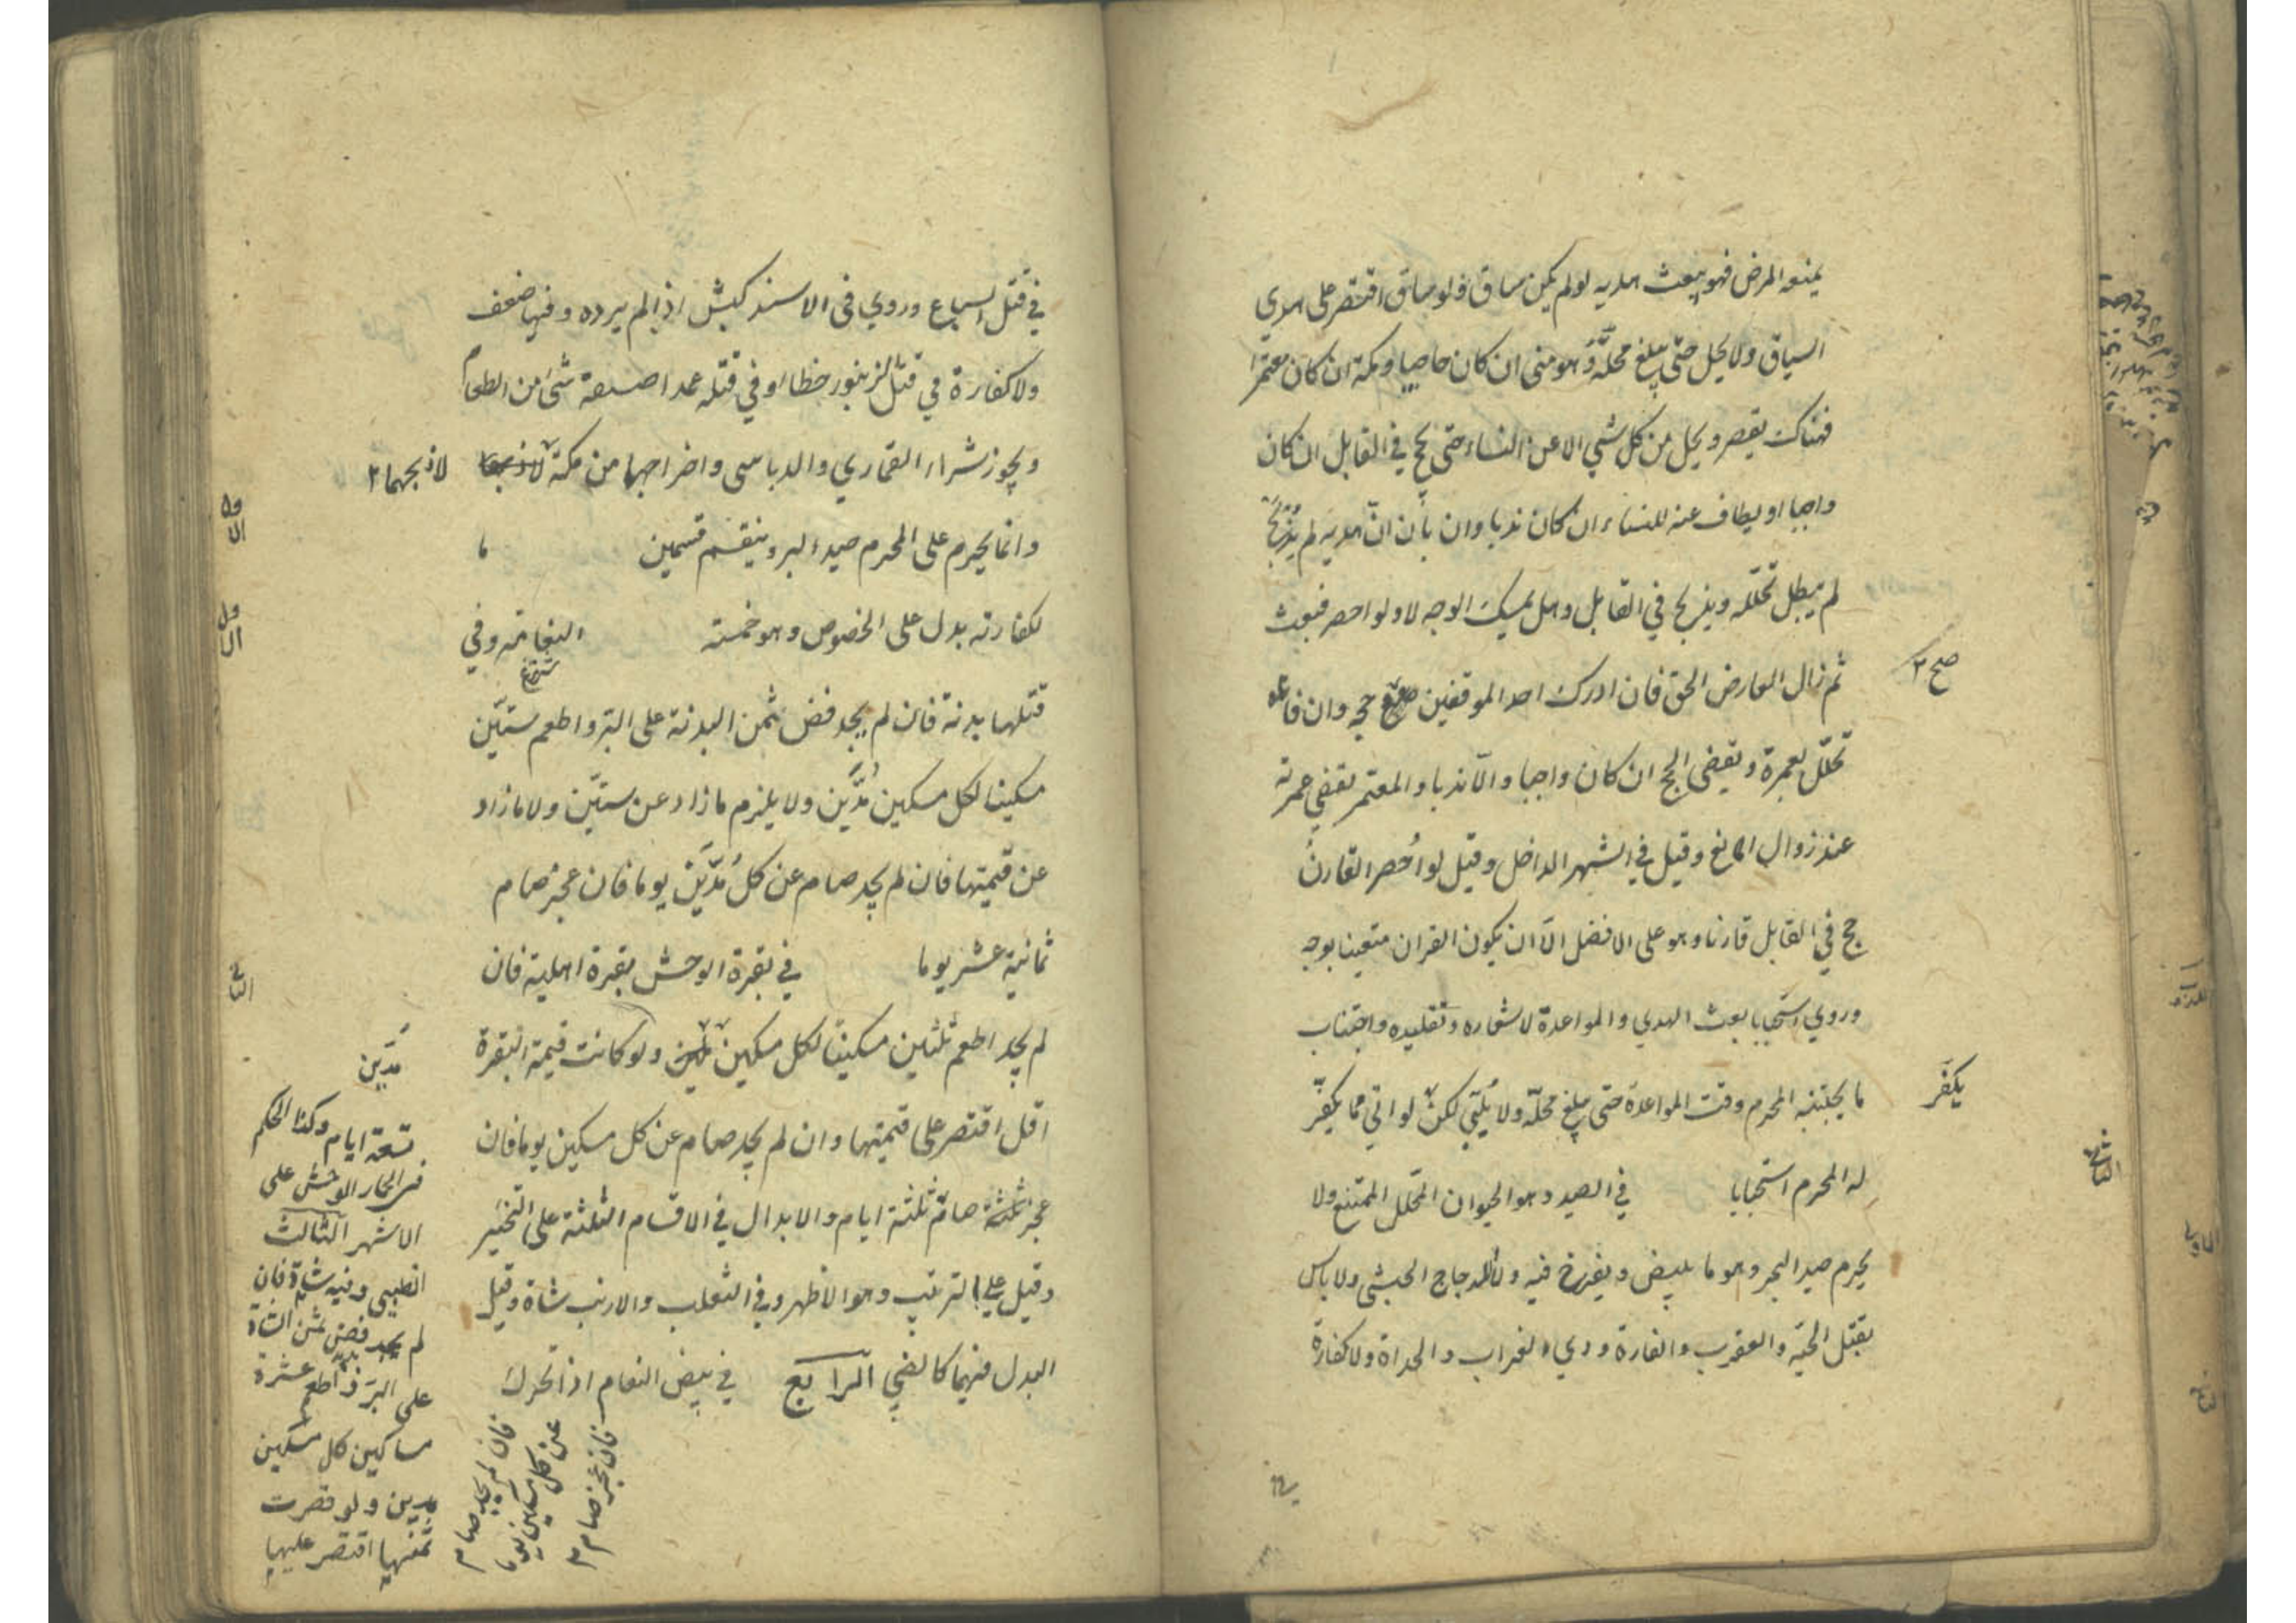 يمنعه المرض فهو يبعث هديه لو لم يكن ساق ولو ساق اقتصر على هدي
السياق ولا يحل حتى يبلغ محلّه وهو منى ان كان حاجا ومكة ان كان معتمرا
فهناك يقصر ويحل من كل شي الا عن النساء حتى يحج في القابل ان كان
واجبا او يطاف عنه للنساء ان كان ندبا وان بان انّ هديه لم يُذبح
لم يبطل تحلله ويذبح في القابل وهل يمسك الوجه لا ولو احصر فبعث
ثم زال العارض التحق فان ادرك احد الموقفين صح حجه وان فاتاه
صح ٢
تحلّل بعمرة ويقضي الحج ان كان واجبا والّا ندبا والمعتمر يقضي عمرته
عند زوال المانع وقيل في الشهر الداخل وقيل لو اُحصر القارنُ
حج في القابل قارنا وهو على الافضل الّا ان يكون القران متعينا بوجه
وروي استحبابا بعث الهدي والمواعدة لاشعاره وتقليده واجتناب
ما يجتنبه المحرم وقت المواعدة حتى يبلغ محلّه ولا يُلَبّي لكنْ لو اتي مما يكفّر
يكفّر
له المحرم استحبابا في الصيد وهو الحيوان المحلل الممتنع ولا
يحرم صيد البحر وهو ما يبيض ويفرخ فيه ولا الدجاج الحبشي ولا باس
بقتل الحيّة والعقرب والفارة ورمي الغراب والحداة ولا كفارة
في قتل السباع وروي في الاسد كبش اذا لم يرده وفيها ضعف
ولا كفارة في قتل الزنبور خطا او في قتله عمدا صدقة شئ من الطعام
ويجوز شراء القماري والدباسي واخراجها من مكة لا ذبحها لا ذبحهما ٢
وانما يحرم على المحرم صيد البر وينقسم قسمين ما
لكفارته بدل على الخصوص وهو خمسة النعامة وفي
قتلها بدنة فان لم يجد فض ثمن البدنة على البر واطعم ستّين
مسكينا لكل مسكين مُدَّين ولا يلزم ما زاد عن ستّين ولا ما زاد
عن قيمتها فان لم يجد صام عن كل مُدَّين يوما فان عجز صام
ثمانية عشر يوما في بقرة الوحش بقرة اهلية فان
لم يجد اطعم ثلثين مسكينًا لكل مسكين ولو كانت قيمة البقرة
اقل اقتصر على قيمتها وان لم يجد صام عن كل مسكين يوما فان
عجز صام ثلثة ايام والابدال في الاقسام الثلثة على التخيير
وقيل على الترتيب وهو الاظهر وفي الثعلب والارنب شاة وقيل
البدل فيهما كالظبي الرابع في بيض النعام اذا تحرك
مُدّين
تسعة ايام وكذا الحكم
في الحمار الوحش على
الاشهر الثالث
الظبي وفيه شاة فان
لم يجد فض ثمن الشاة
على البر واطعم عشرة
مساكين كل مسكين
مدين ولو قصرت
ثمنها اقتصر عليها
فان لم يجد صام
عن كل مسكين يوما
فان عجز صام ٣